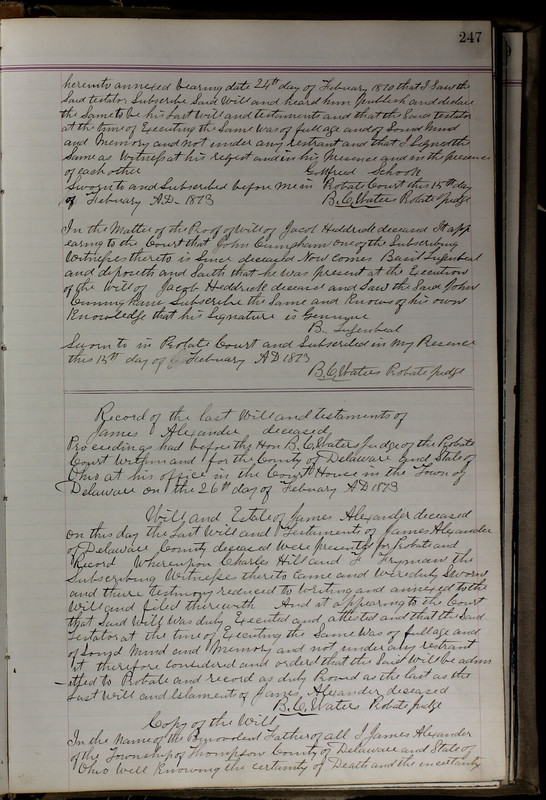 247
hereunto annexed bearing date 24th day of February 1870 that I saw the
Said testator Subscribe Said Will and heard him publish and declare
the Same to be his Last Will and testaments and that the Said testator
at the time of Executing the Same was of full age and of Sound Mind
and Memory and not under any restraint and that I Signed the
Same as Witness at his request and in his Presence and in the presence
of each other Gottfred Schook
Sworn to and Subscribed before me in Probate Court this 15th day
of Febuary AD 1873 B.C. Waters Probate Judge
In the Matter of the Proof of Will of Jacob Hedderick deceased It app
earing to the Court that John Cuningham one of the Subscribing
Witnesses thereto is Since deceased Now comes Basil
and deposeth and Saith that he was present at the Execution
of the Will of Jacob Hedderick deceased and Saw the Said John
Cunningham Subscribe the Same and Knows of his own
Knowledge that his Signature is Genuyne
B.
Sworn to in Probate Court and Subscribed in my Presence
this 15th day of Febuary AD 1873
B.C. Waters Probate Judge
Record of the last Will and testaments of
James Alexander deceased
Proceedings had before the Hon B.C. Waters Judge of the Probate
Court Within and for the County of Delaware and State of
Ohio at his office in the Court House in the Town of
Delaware on the 26th day of Febuary AD 1873
Will and Estate of James Alexander deceased
On this day the Last Will and Testaments of James Alexander
of Delaware County deceased Were presented for Probate and
Record Whereupon Charles Hill and F Fryman the
Subscribing Witnesses thereto came and were duly Sworn
and there testimony reduced to Writing and annexed to the
Will and filed therewith And it appearing to the Court
that Said Will was duly Executed and attested and that the Said
Testator at the time of Executing the Same was of full age and
of Sound Mind and Memory and not under any restraint
it therefore considered and orderd that the Said Will be adm
itted to Probate and record as duly Proved as the last as the
Last Will and of James Alexander deceased
B.C. Waters Probate Judge
Copy of the Will
In the Name of the Benevolent Father of all I James Alexander
of the Township of Thompson County of Delaware and State of
Ohio Will Knowing the certainty of Death and the uncertainty